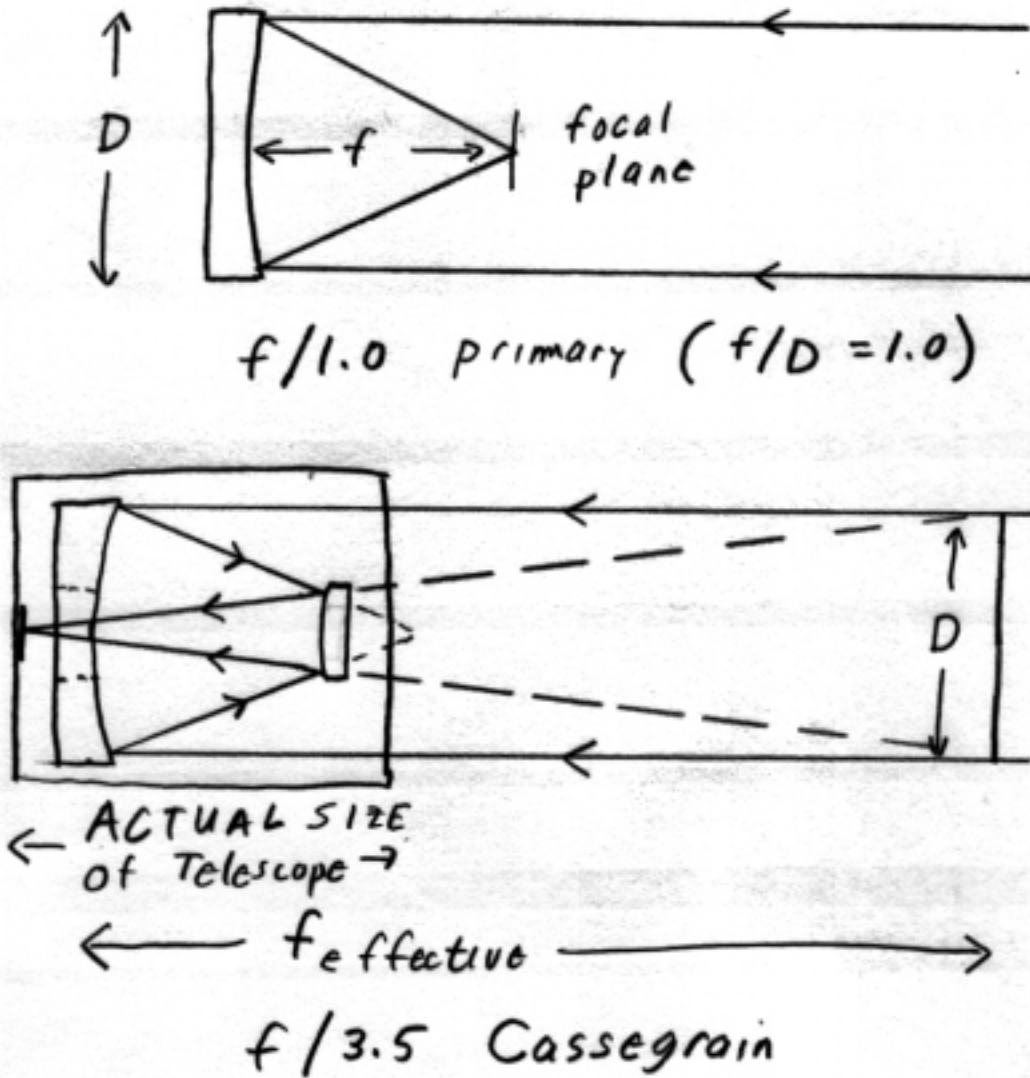 D
f
focal
plane
f/1.0 primary (f/D = 1.0)
D
ACTUAL SIZE
of Telescope
feffective
f/3.5 Cassegrain